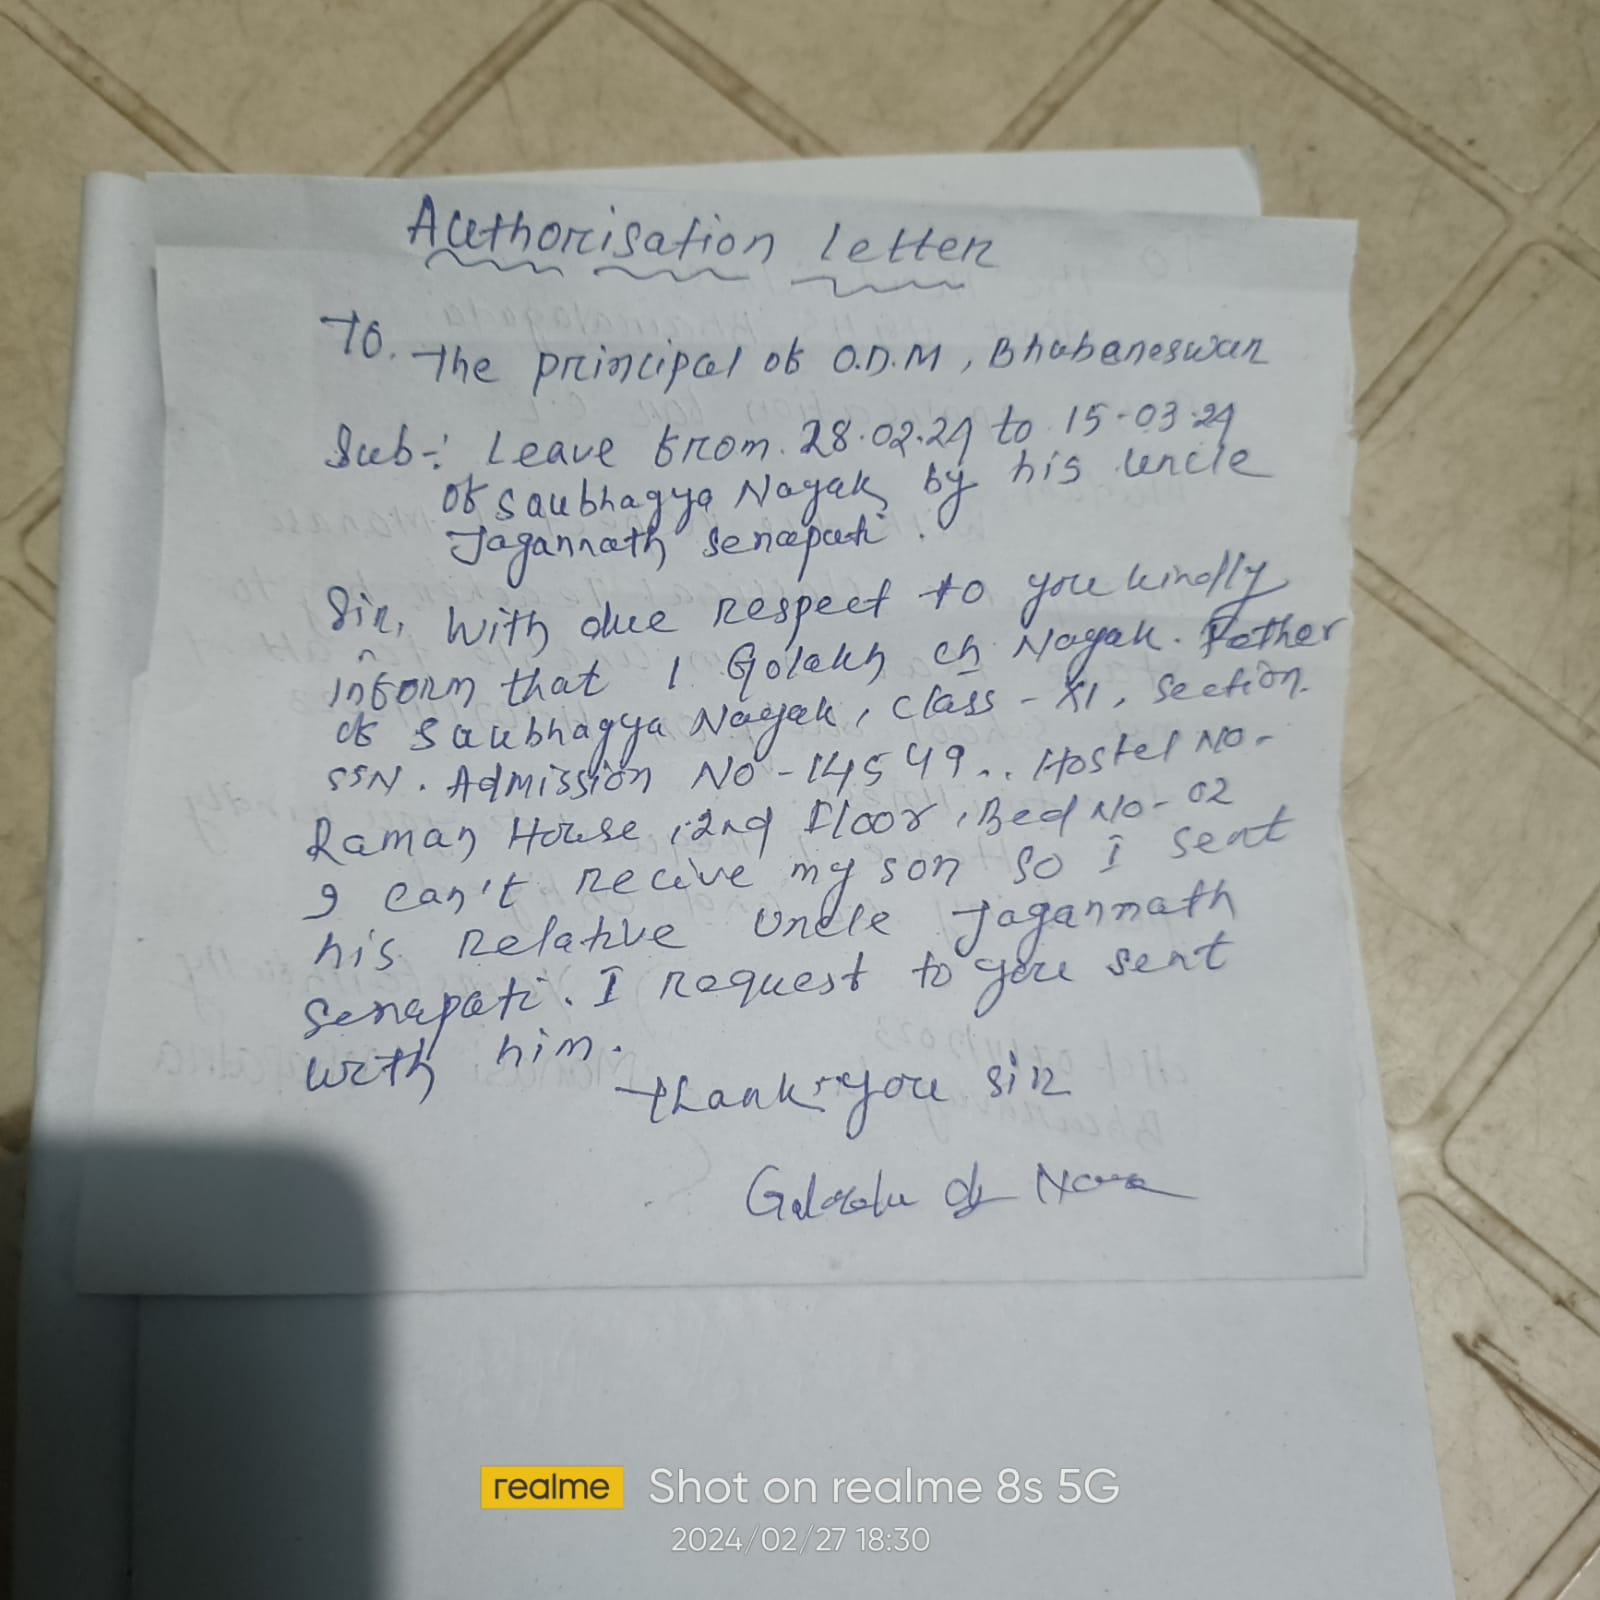 Authorisation Letter
To.
The principal of O.D.M, Bhubaneswar
Sub-: Leave from. 28.02.24 to 15-03-24
of Saubhagya Nayak by his uncle
Jagannath Senapati.
Sir, With due respect to you kindly
inform that I Golakh ch Nayak. Father
of Saubhagya Nayak, class - XI, Section.
SSN. Admission No - 14549.. Hostel No-
Raman House, 2nd Floor, Bed No- 02
I can't recive my son so I sent
his relative uncle Jagannath
Senapati. I request to you sent
with him.
Thank you sir
realme Shot on realme 8s 5G
2024/02/27 18:30